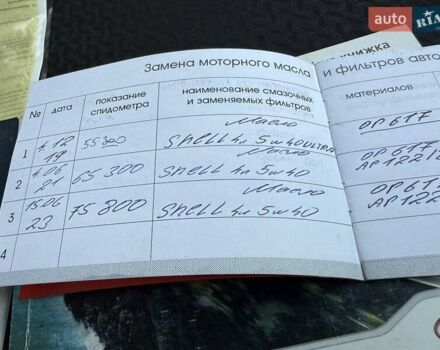 auto
RIA
книжка
Замена моторного масла
и фильтров авто
№
дата
показание
спидометра
наименование смазочных
и заменяемых фильтров
материалов
1
4.12
19
Масло
Shell 4л 5w40
OP 617
2
4.06
21
65 300
Масло
Shell 4л 5w40
OP 617
AP 122/
3
15.06
23
75 800
Масло
Shell 4л 5w40
OP 617
AP 122
4